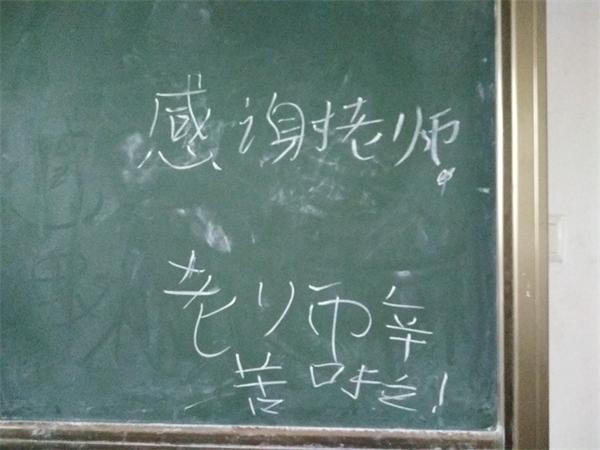 感谢老师。
老师辛
苦啦!